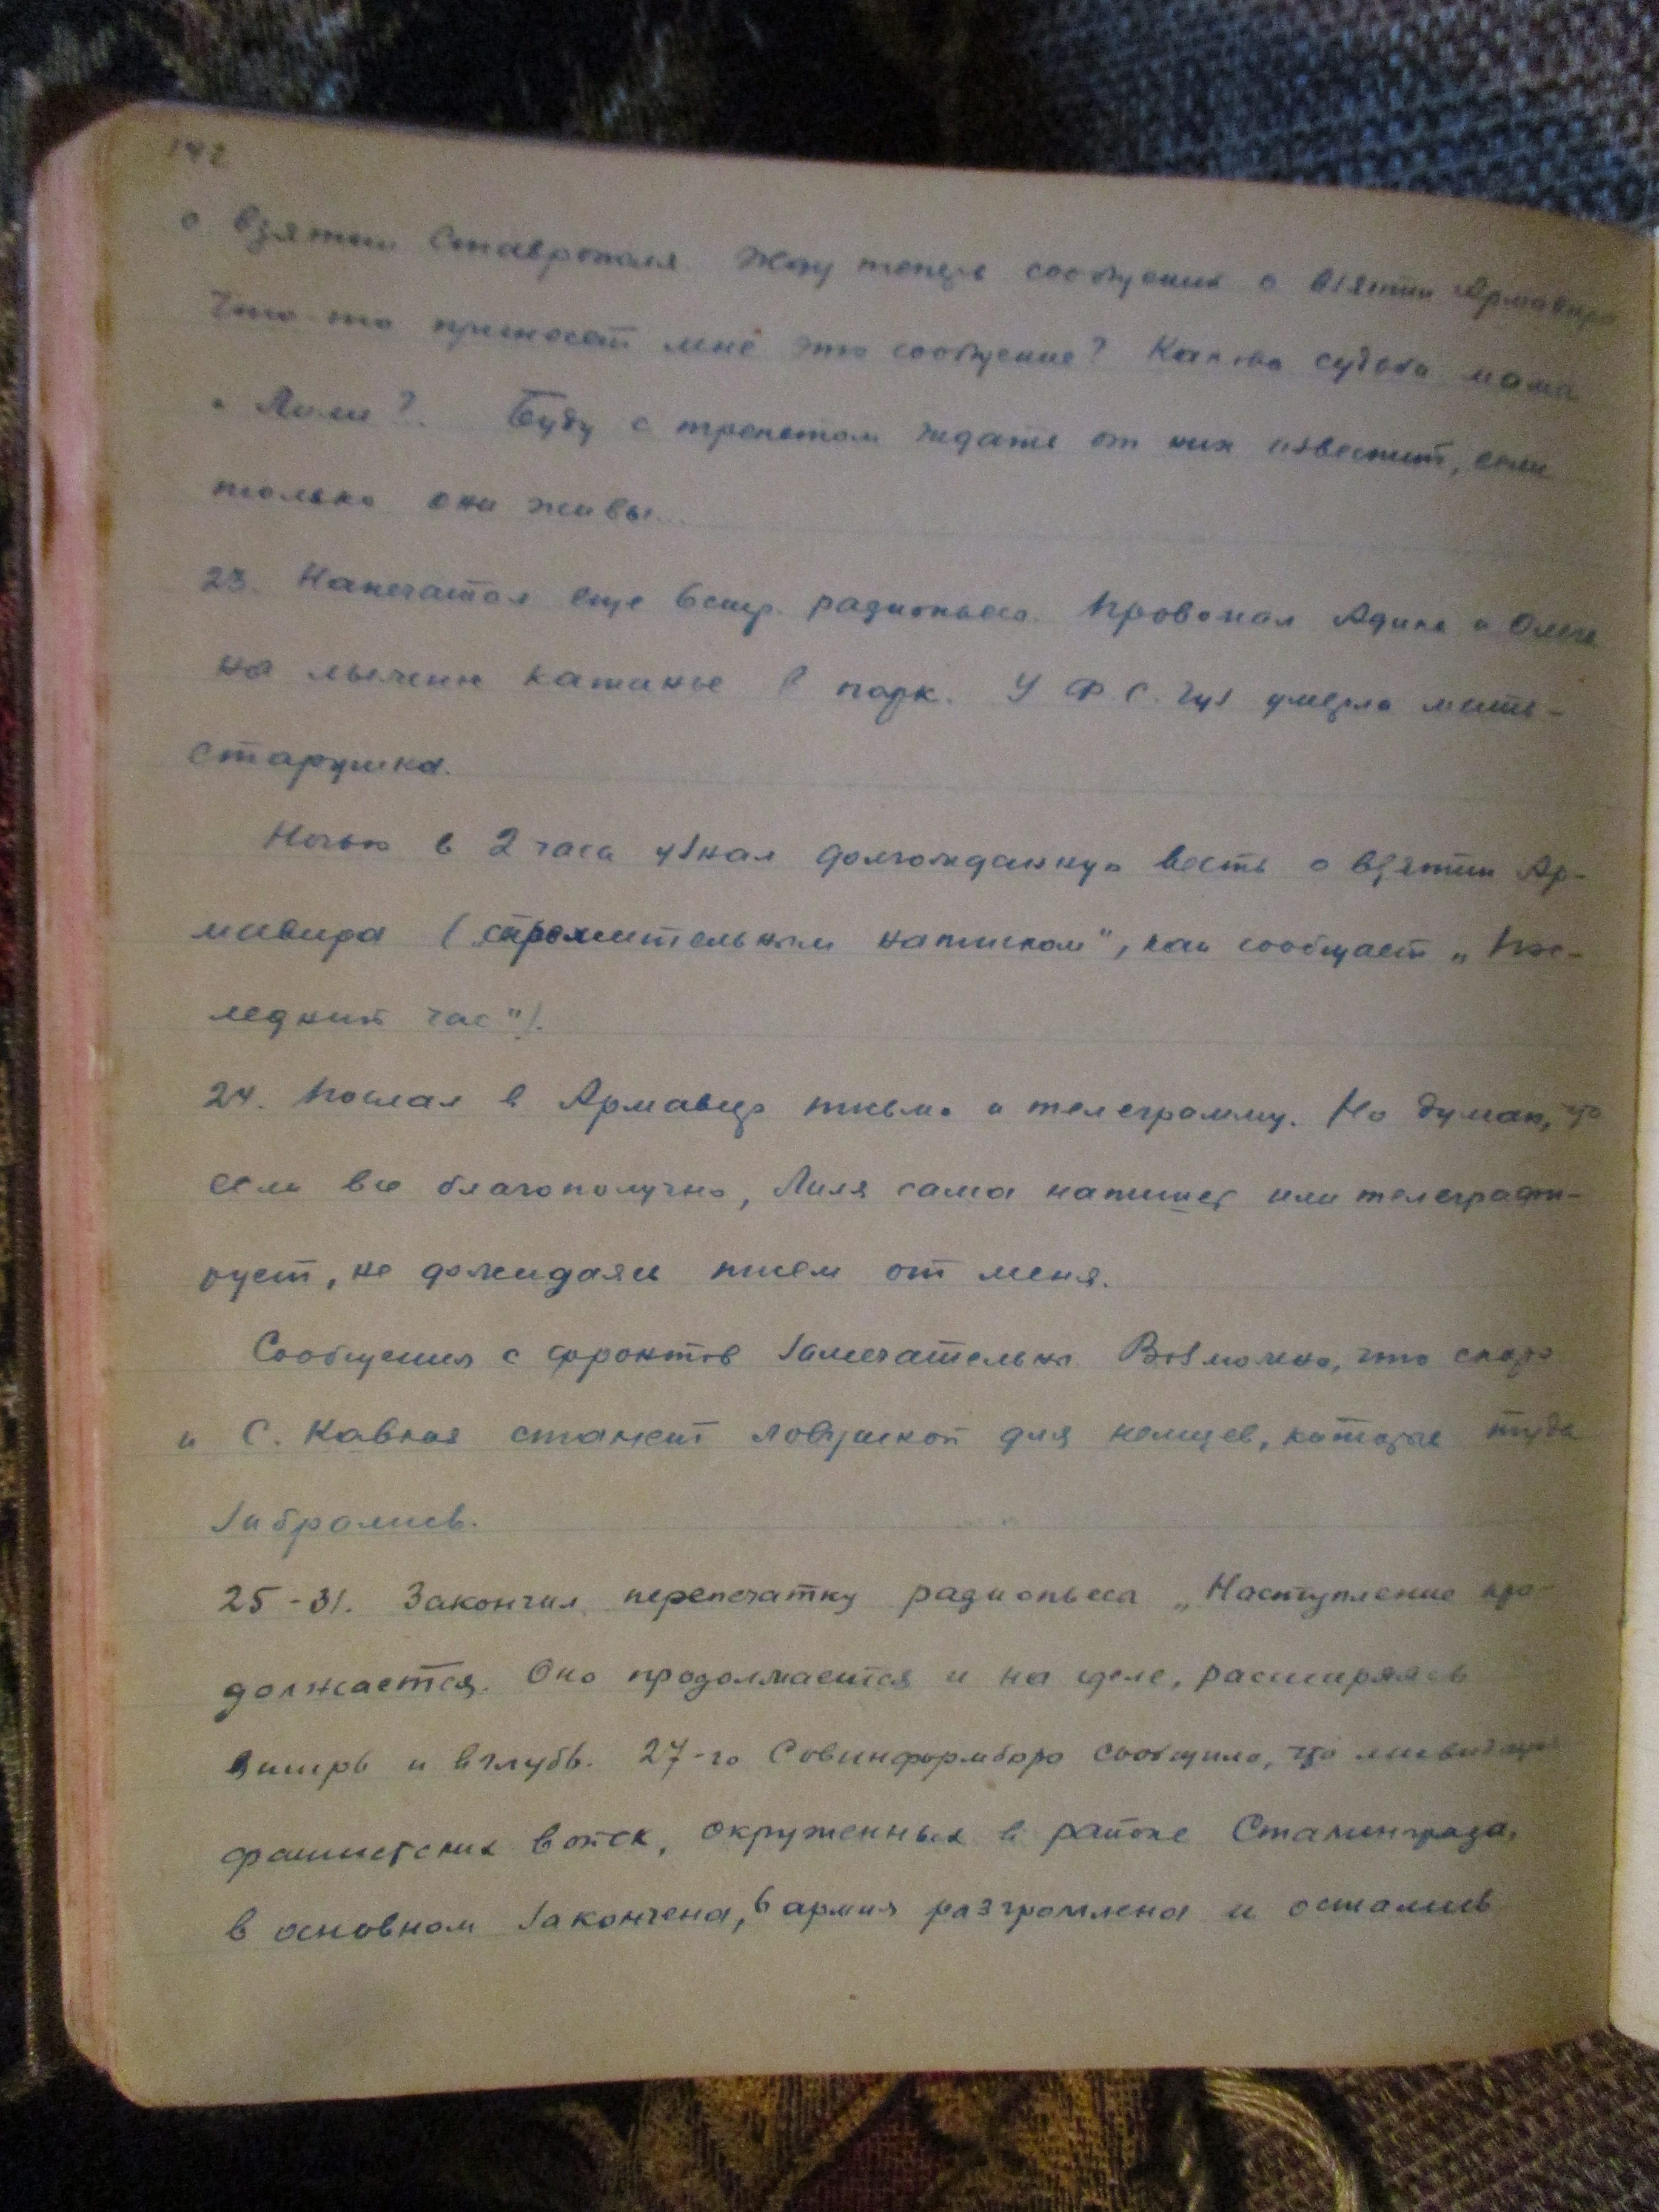 142
о взятии Ставрополя. Жду теперь сообщения о взятии Армавира
Что-то принесет мне это сообщение? Какова судьба мамы
и Лили?.. Буду с трепетом ждать от них известий, если
только они живы...
23. Напечатал еще 6 стр. радиопьесы. Провожал Адика и Олега
на лыжное катанье в парк. У Ф. С. умерла мать-
старушка.
Ночью в 2 часа узнал долгожданную весть о взятии Ар-
мавира ("стремительным натиском", как сообщает „Пос-
ледний час").
24. Послал в Армавир письмо и телеграмму. Но думаю, что
если все благополучно, Лиля сама напишет или телеграфи-
рует, не дожидаясь писем от меня.
Сообщения с фронтов замечательны. Возможно, что скоро
и С. Кавказ станет ловушкой для немцев, которые туда
забрались.
25-31. Закончил перепечатку радиопьесы „Наступление про-
должается. Оно продолжается и на деле, расширяясь
вширь и вглубь. 27-го Совинформбюро сообщило, что ликвидация
фашистских войск, окруженных в районе Сталинграда,
в основном закончена, 6 армия разгромлена и остались